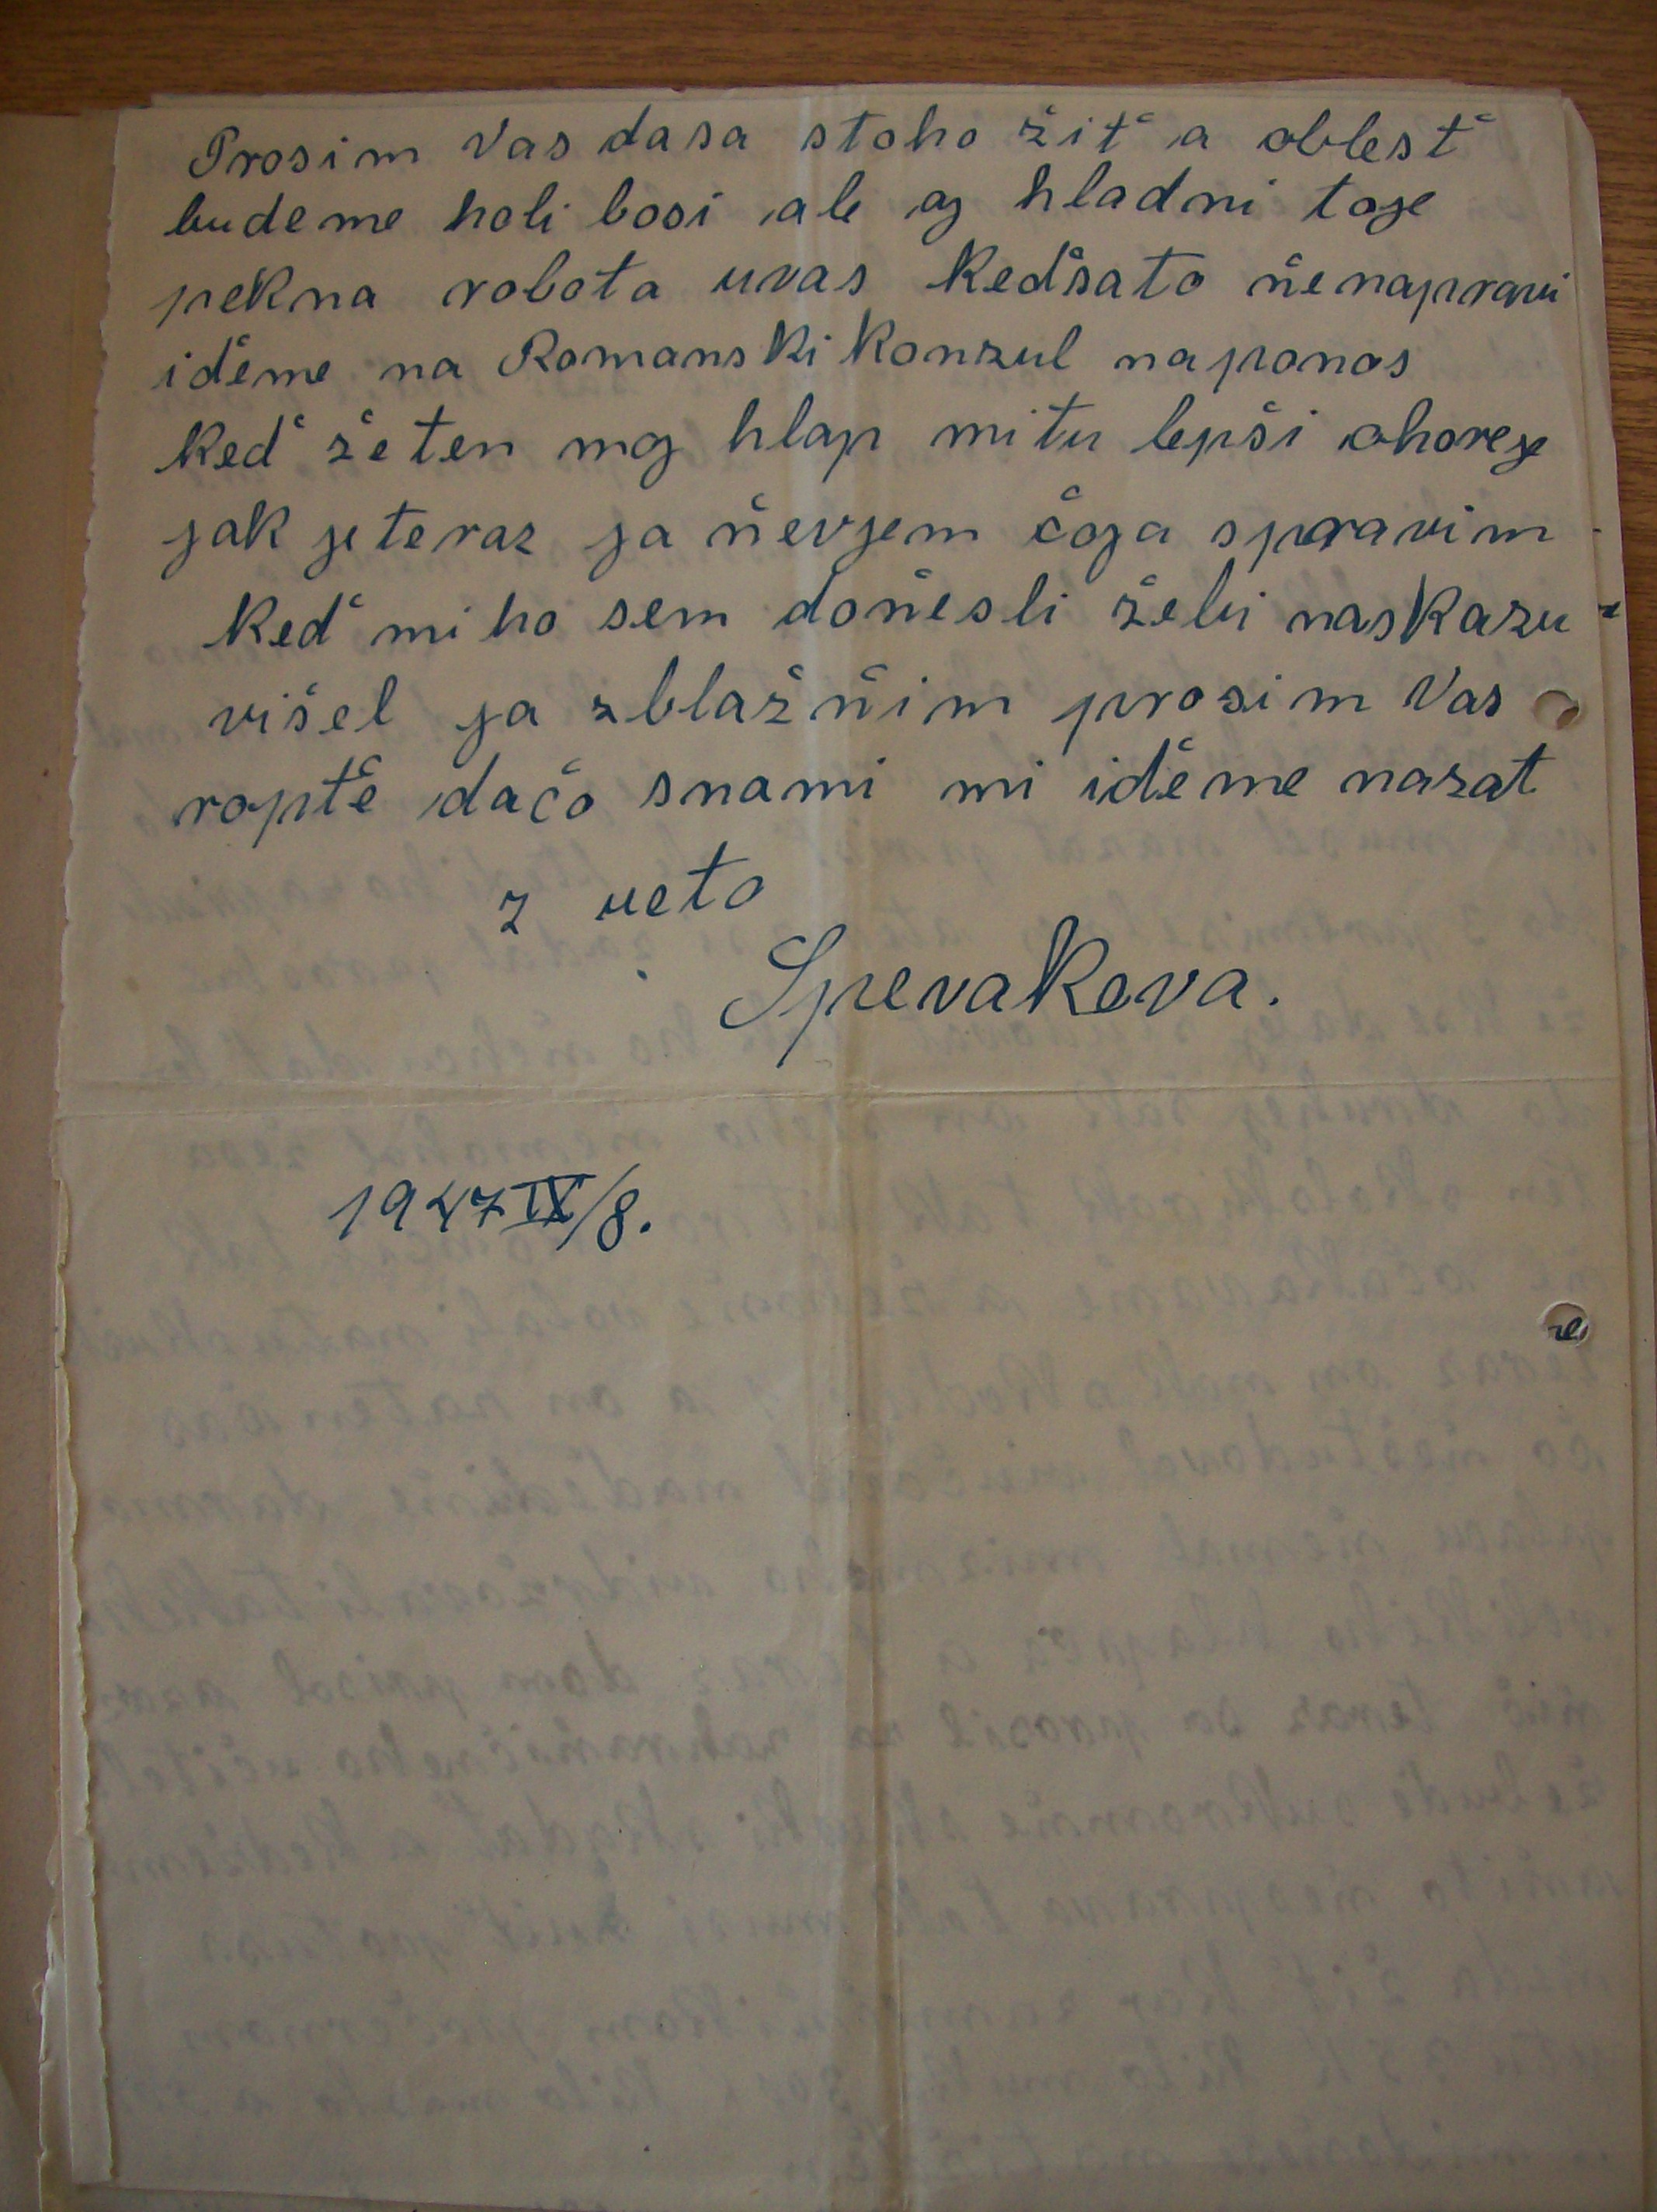 Prosim Vas dasa stoho žiť a oblesť
budeme holi bosi ale aj hladni toje
pekna robota uvas Keďsato ňenapravi
iďeme na Romanski Konzul naponos
Keď že ten moj hlap mi tu lepši ohoreje
jak je teraz ja ňevjem čoja spraravim
Keď mi ho sem doňesli žebi naskazu
višel ja zblažňim prosim Vas
ropťe dačo snami mi iďeme nazat
z ucto
SpevaKova.
1947 IX/8.